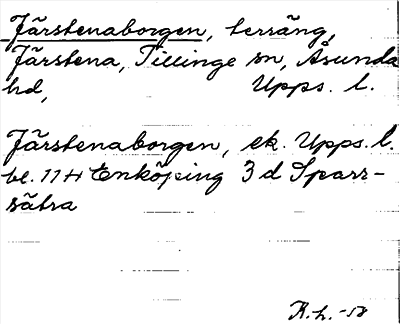 Järstenaborgen, terräng,
Järstena, Tillinge sn, Åsunda
hd, Upps. l.
Järstenaborgen, ek. Upps. l.
bl. 11 H Enköping 3 d Sparr-
sätra
R. h. -58